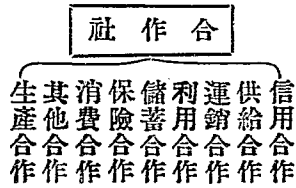 合作社
信用合作
供給合作
運銷合作
利用合作
儲蓄合作
保險合作
消費合作
其他合作
生產合作